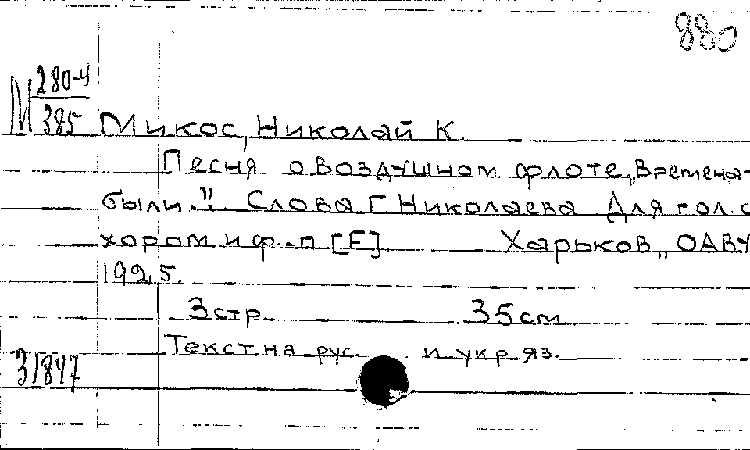 880
М 280-4
385
Микос, Николай К.
Песня о воздушном флоте „Времена-
были." Слова Г Николаева Для гол с
хором и ф.-п [F] Харьков, ОАВУ
1925.
3 стр. 35 см
Текст на рус и укр яз.
31847